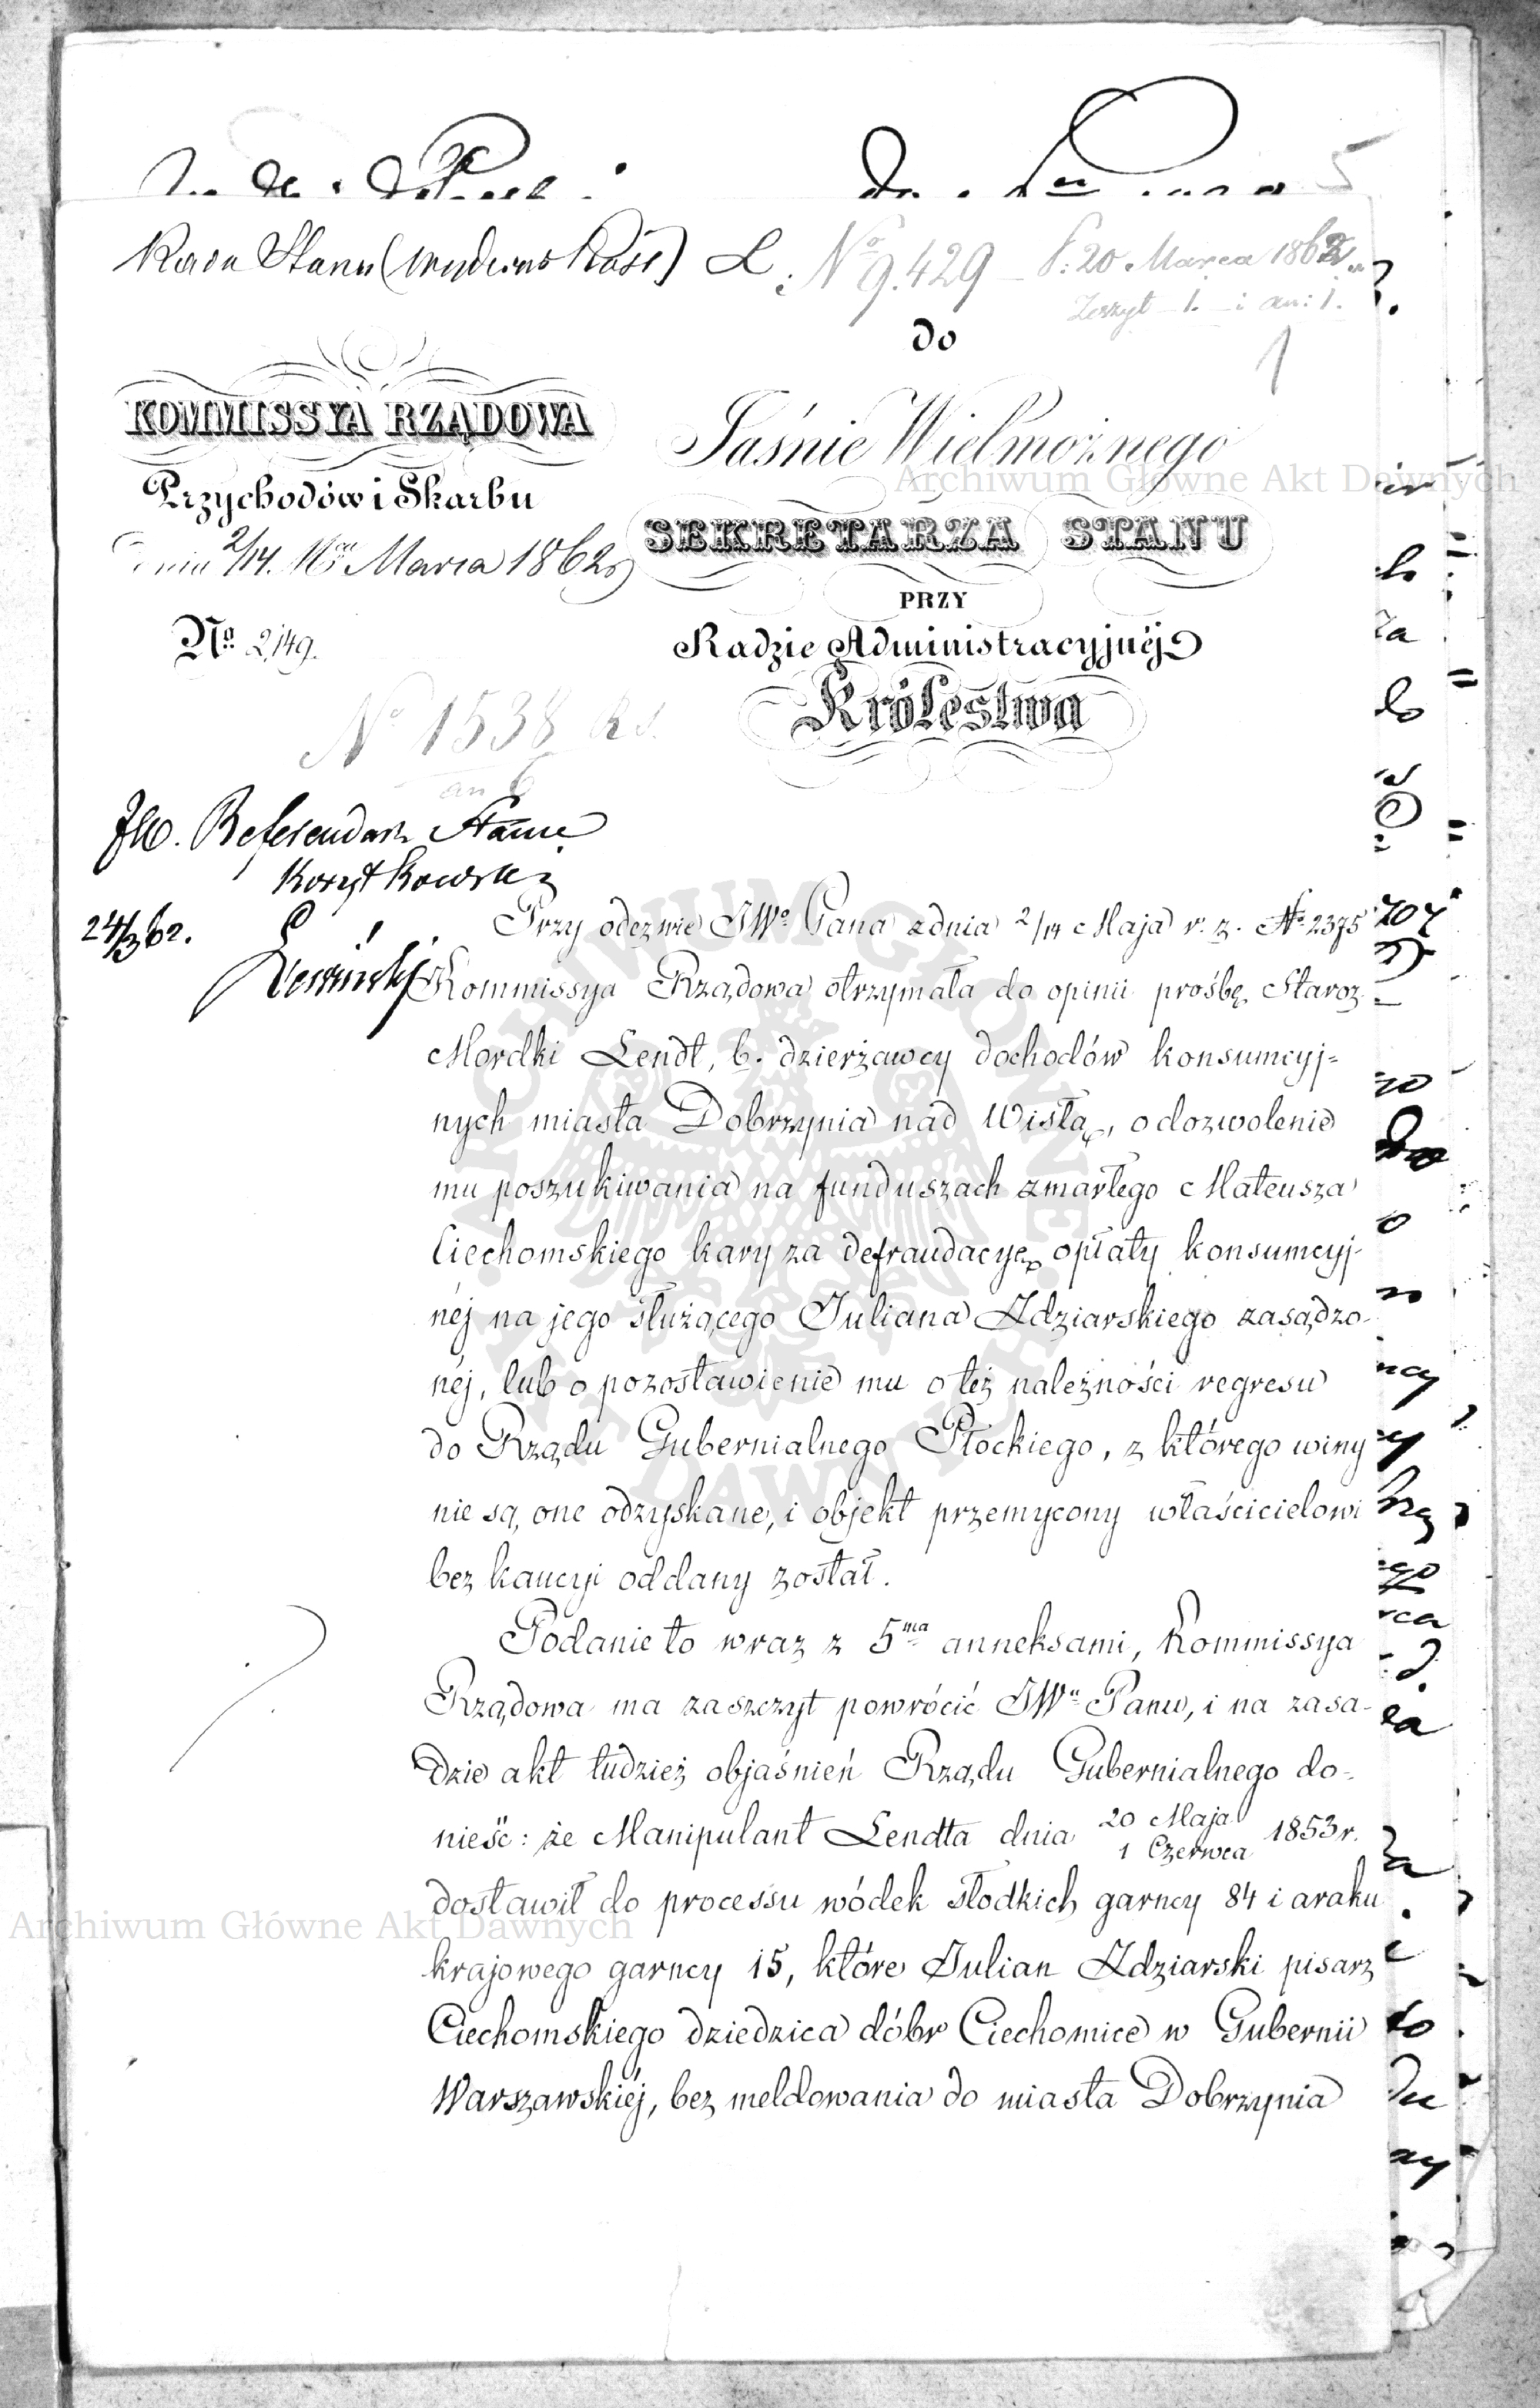 Rada Stanu (Wydział Kass) L. No 9.429 – d: 20 Marca 1862.
Zeszyt 1. – i an: 1.
5
1
do
KOMMISSYA RZĄDOWA
Przychodów i Skarbu
dnia 2/14. Mca Marca 1862 r
No 2,149.
Jaśnie Wielmożnego
SEKRETARZA STANU
PRZY
Radzie Administracyjnéj
Królestwa
No 1538 R.S.
an 6
JW. Referendarz Stanu
Korytkowski
24/3 62.
Przy odezwie JWo Pana z dnia 2/14 Maja r. z. No 2375
Kommissya Rządowa otrzymała do opinii prośbę Staroz.
Mordki Lendt, b. dzierżawcy dochodów konsumcyj=
nych miasta Dobrzynia nad Wisłą, o dozwolenie
mu poszukiwania na funduszach zmarłego Mateusza
Ciechomskiego kary za defraudacyę opłaty konsumcyj-
néj na jego służącego Juliana Adziarskiego zasądzo-
néj, lub o pozostawienie mu o też należności regresu
do Rządu Gubernialnego Płockiego, z którego winy
nie są one odzyskane, i objekt przemycony właścicielowi
bez kaucyi oddany został.
Podanie to wraz z 5ma anneksami, Kommissya
Rządowa ma zaszczyt powrócić JWu Panu, i na zasa-
dzie akt tudzież objaśnień Rządu Gubernialnego do-
nieść: że Manipulant Lendta dnia 20 Maja / 1 Czerwca 1853 r.
dostawił do processu wódek słodkich garncy 84 i araku
krajowego garncy 15, które Julian Adziarski pisarz
Ciechomskiego dziedzica dóbr Ciechomice w Gubernii
Warszawskiéj, bez meldowania do miasta Dobrzynia
Archiwum Główne Akt Dawnych
Archiwum Główne Akt Dawnych
ARCHIWUM GŁÓWNE AKT DAWNYCH